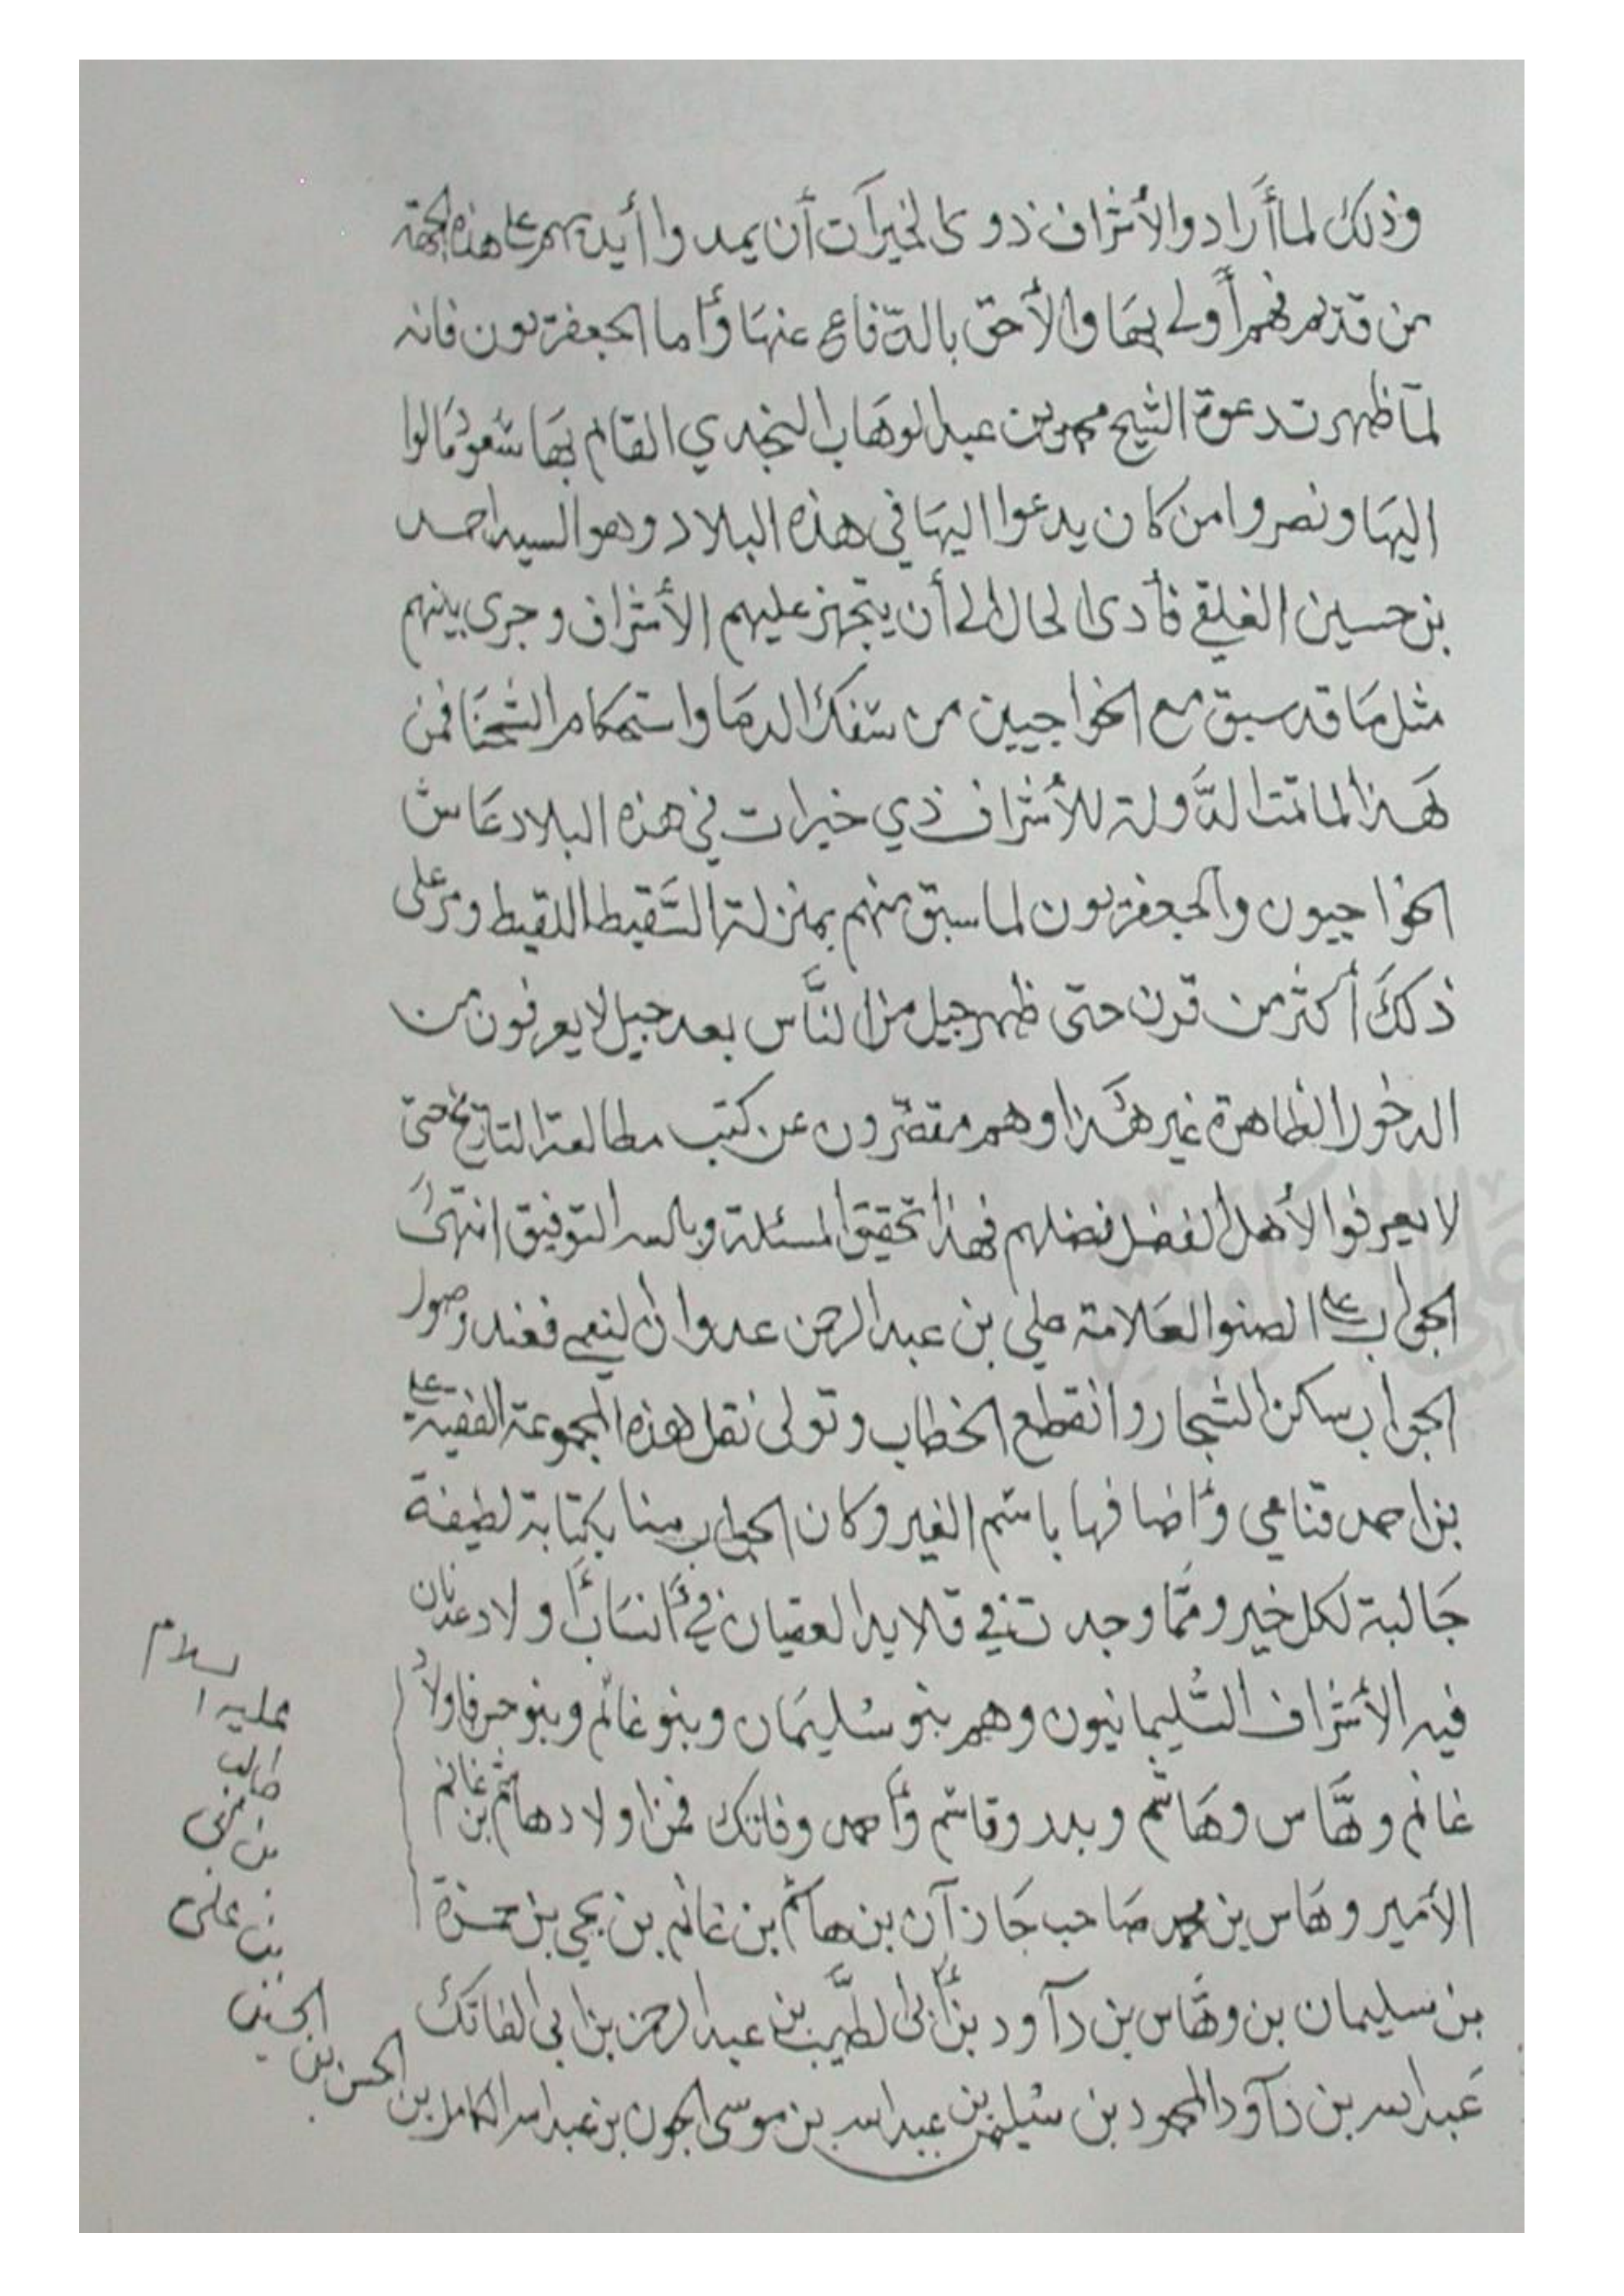 وذلك لما أرادوا الأشراف ذوى الخيرات أن يمدوا أيديهم على هذه الجهة
من قديم فهم أولى بها والأحق بالدّفاع عنها وأما الجعفريون فانه
لمّا ظهرت دعوة الشيخ محمد بن عبد الوهاب النجدي القائم بها سعود مالوا
اليها ونصروا من كان يدعوا اليها في هذه البلاد وهو السيد احمد
بن حسين الفلقي فأدى الحال الى أن يتجهز عليهم الأشراف وجرى بينهم
مثل ما قد سبق مع الخواجيين من سفك الدما واستحكام الشحنا فمن
هذا لما تمت الدّولة للأشراف ذي خيرات في هذه البلاد عاش
الخواجيون والجعفريون لما سبق منهم بمنزلة السّقيط اللقيط ومر على
ذلك أكثر من قرن حتى ظهر جيل من النّاس بعد جيل لا يعرفون من
الدخول الظاهرة غير هذا وهم مقصّرون عن كتب مطالعة التاريخ حتى
لا يعرفوا لأهل الفضل فضلهم فهذا تحقيق المسئلة وبالله التوفيق انتهى
الجواب على الصنو العلامة علي بن عبد الرحمن عدوان النعمي فعند وصول
الجواب سكن الشجار وانقطع الخطاب وتولى نقل هذه المجموعة الفقيه علي
بن احمد قناعي وأضافها باسم الغير وكان الجواب مينا بكتابة لطيفة
جالبة لكل خير وممّا وجدت في قلايد العقيان في أنساب أولاد عدنان
فيه الأشراف السّليمانيون وهم بنو سليمان وبنو غانم وبنو حمزه فاولاد
غانم وهّاس وهاشم وبدر وقاسم وأحمد وفاتك فمن اولاد هاشم بن غانم
الأمير وهاس بن محمد صاحب جازآن بن هاشم بن غانم بن يحي بن حمزة
بن سليمان بن وهّاس بن دآود بن أبي الطيّب بن عبد الرحمن بن ابي الفاتك
عبد الله بن دآود المحمود بن سليمن بن عبد الله بن موسى الجون بن عبد الله الكامل بن
الحسن بن
الحسن
بن علي
بن ابي
طالب
عليه ا
لسلام